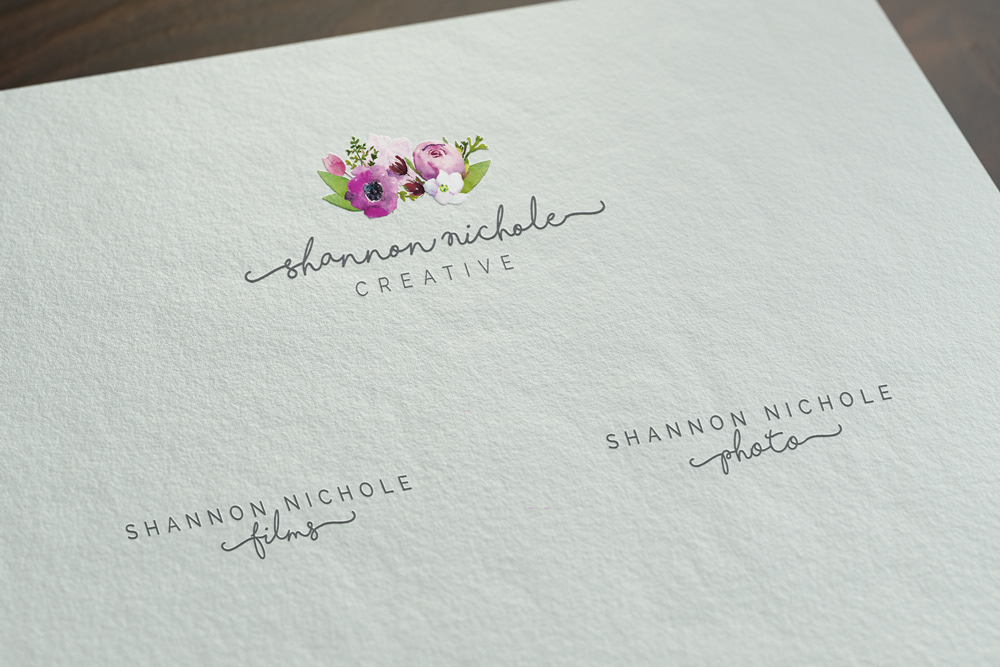 shannon nichole
CREATIVE
SHANNON NICHOLE
photo
SHANNON NICHOLE
films